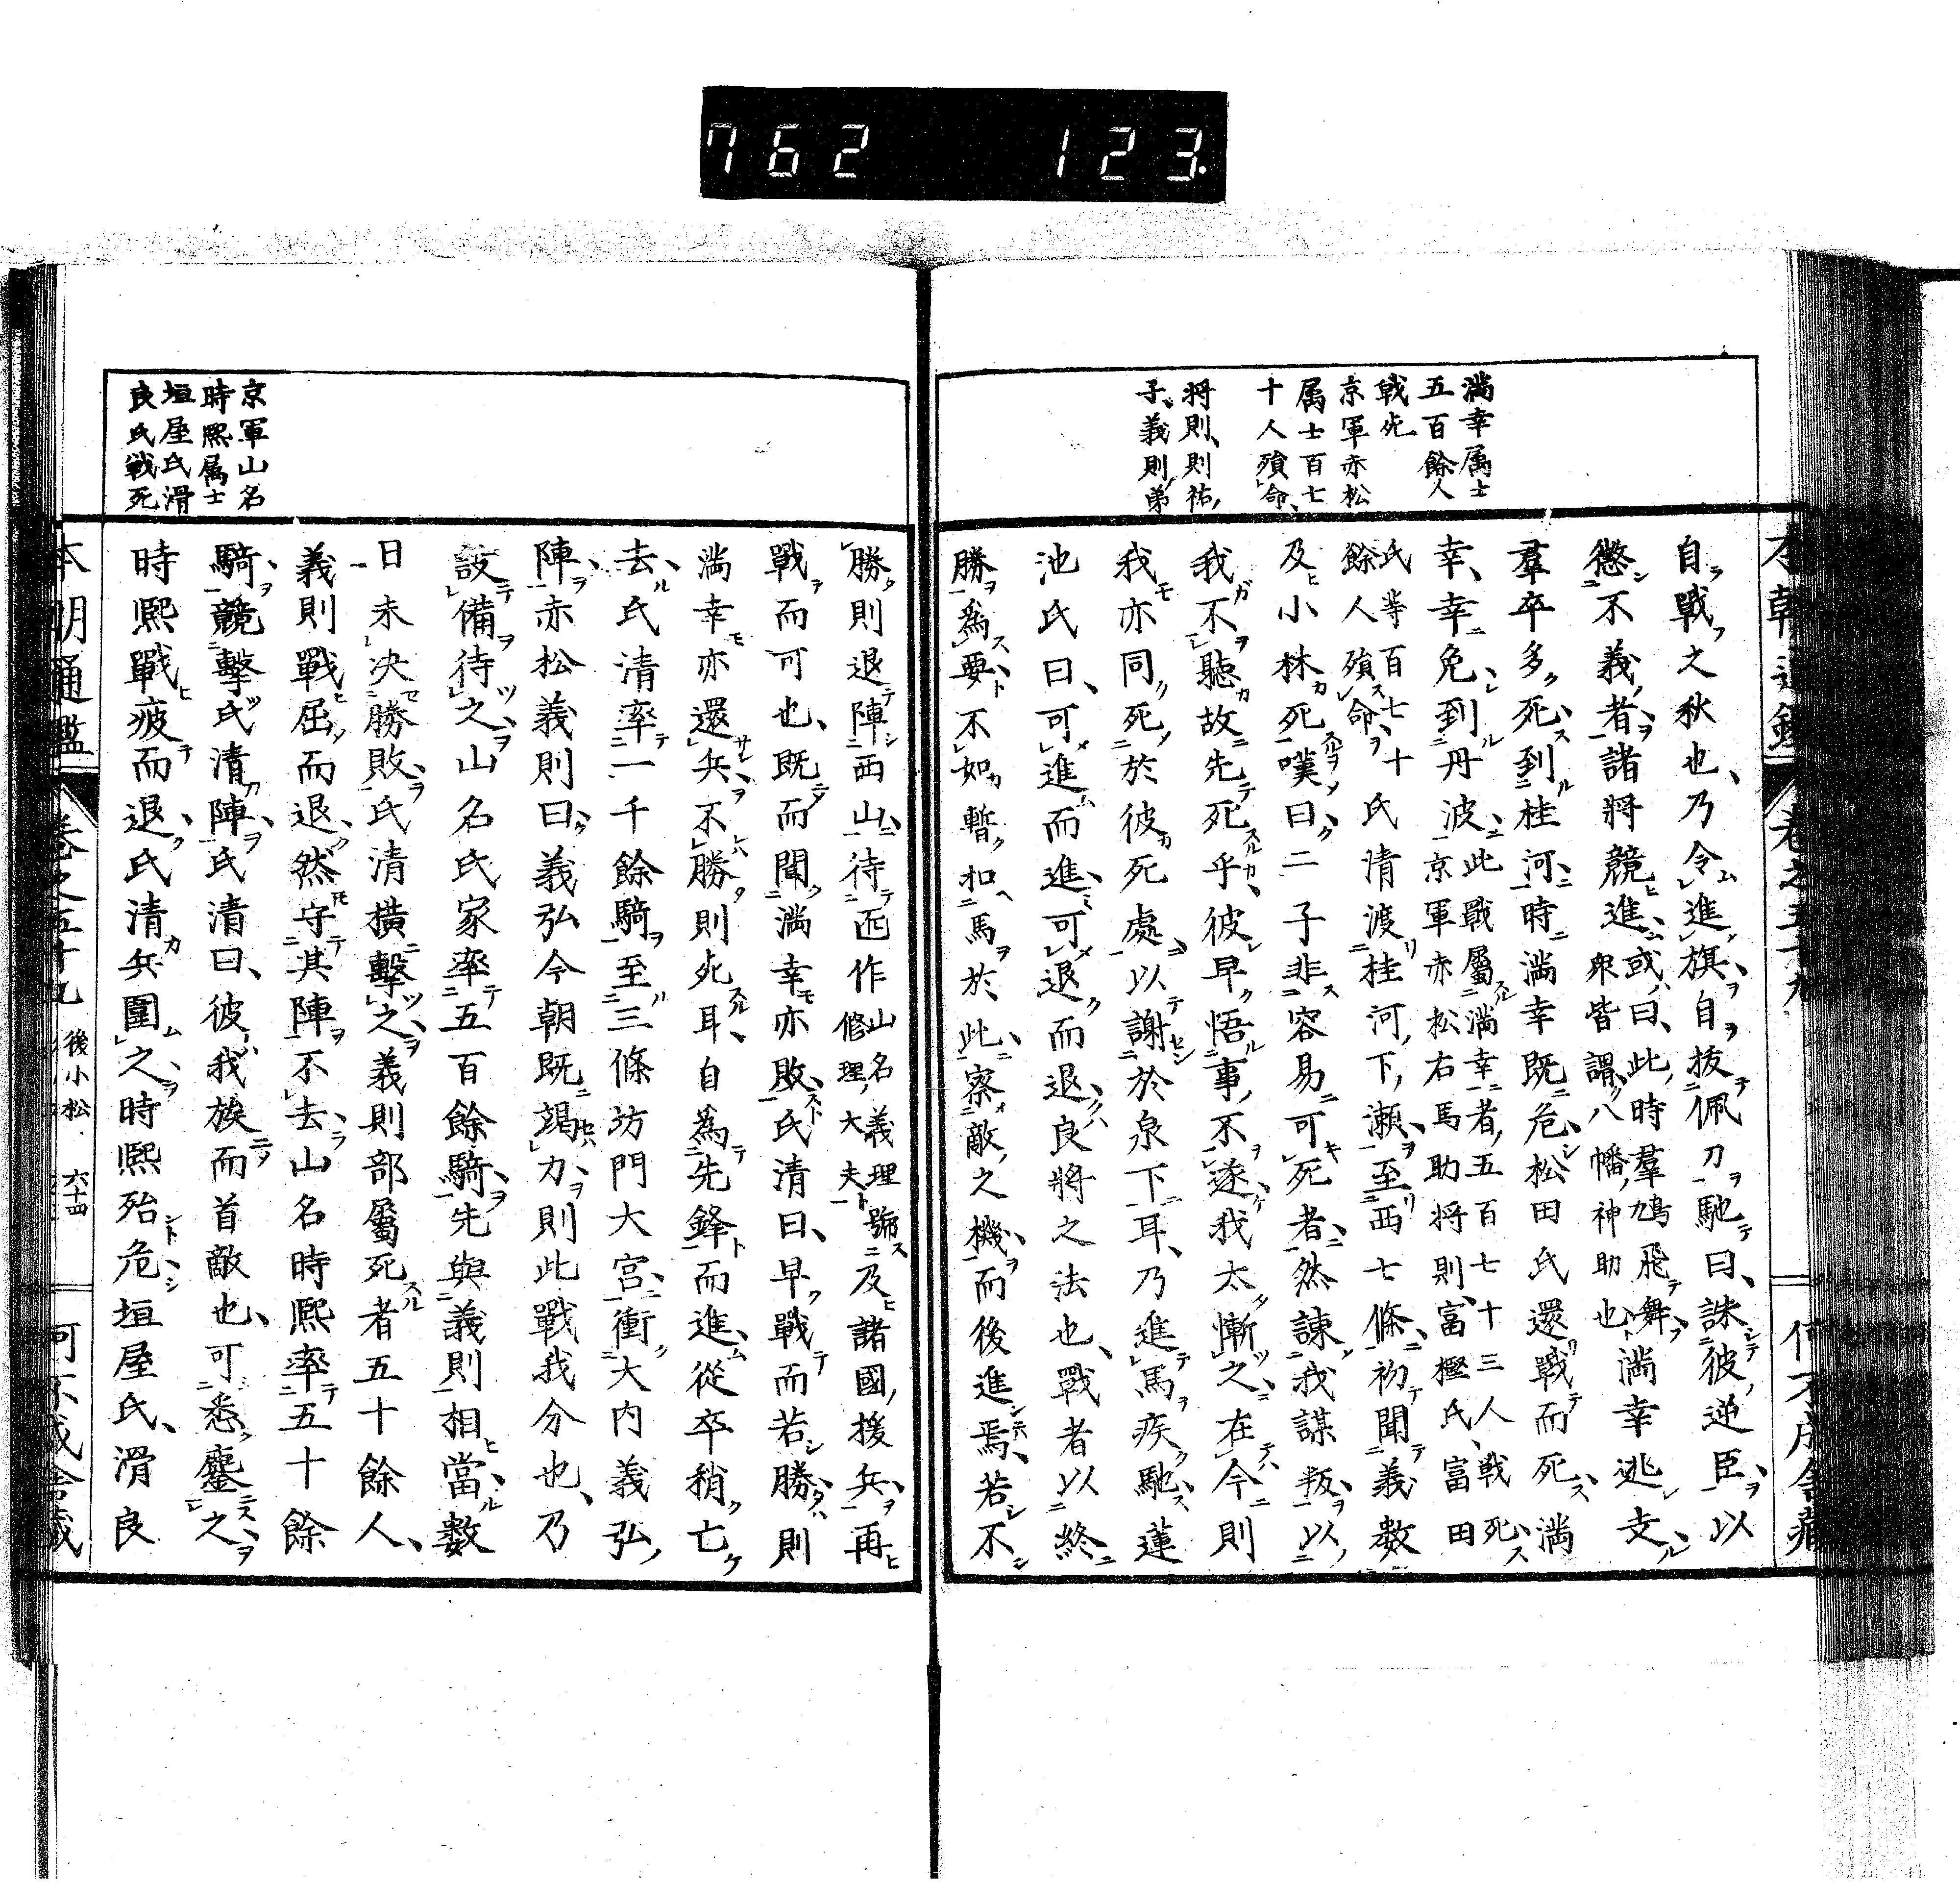 762 123.
満幸属士
五百餘人
戦死
京軍赤松
属士百七
十人殞命、
将則、則祐
子、義則弟
自戰之秋也、乃令進旗自抜佩刀馳曰、誅彼逆臣、以
懲不義者諸將競進或曰、此時羣鳩飛舞衆皆謂八幡神助也満幸逃支
羣卒多死到桂河時満幸既危松田氏還戰而死満
幸、幸免到丹波此戰屬満幸者五百七十三人戰死京軍赤松右馬助将則、富樫氏、富田
氏等百七十餘人殞命氏清渡桂河下瀬至西七條初聞義数
及小林死嘆曰二子非容易可死者然諌我謀叛以
我不聽故先死乎、彼早悟事不遂我太慚之在今則
我亦同死於彼死處以謝於泉下耳、乃進馬疾馳蓮
池氏曰、可進而進可退而退良將之法也、戰者以終
勝為要不如暫扣馬於此察敵之機而後進焉、若不
勝則退陣西山待匝作山名義理號修理大夫及諸國援兵再
戰而可也、既而聞満幸亦敗氏清曰、早戰而若勝則
満幸亦還兵不勝則死耳、自為先鋒而進從卒稍亡
去、氏清率一千餘騎至三條坊門大宮衝大内義弘
陣赤松義則曰義弘今朝既竭力則此戰我分也、乃
設備待之山名氏家率五百餘騎先與義則相當數
日未决勝敗氏清横擊之義則部屬死者五十餘人、
義則戰屈而退然守其陣不去山名時熙率五十餘
騎競擊氏清陣氏清曰、彼我族而首敵也、可悉鏖之
時熙戰疲而退氏清兵圍之時熙殆危垣屋氏、滑良
京軍山名
時熙属士
垣屋氏滑
良氏戦死
後小松 六十四